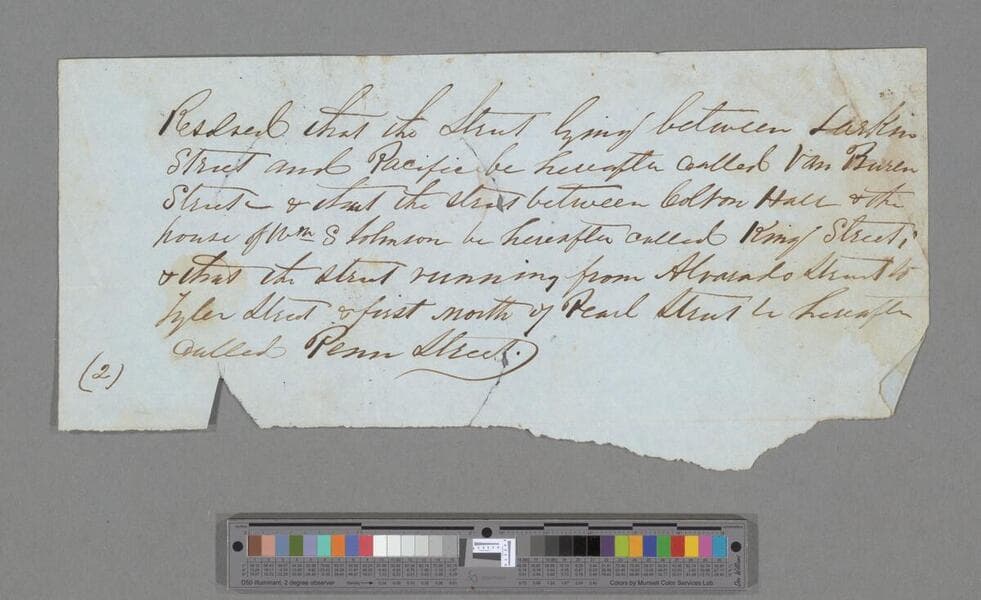 Resolved that the Street lying between Larkin
Street and Pacific be hereafter called Van Buren
Street & that the street between Colton Hall & the
house of Wm S Johnson be hereafter called King Street;
& that the street running from Alvarado Street to
Tyler Street & first north of Pearl Street be hereafter
called Penn Street.
(2)
D50 Illuminant, 2 degree observer
Colors by Munsell Color Services Lab